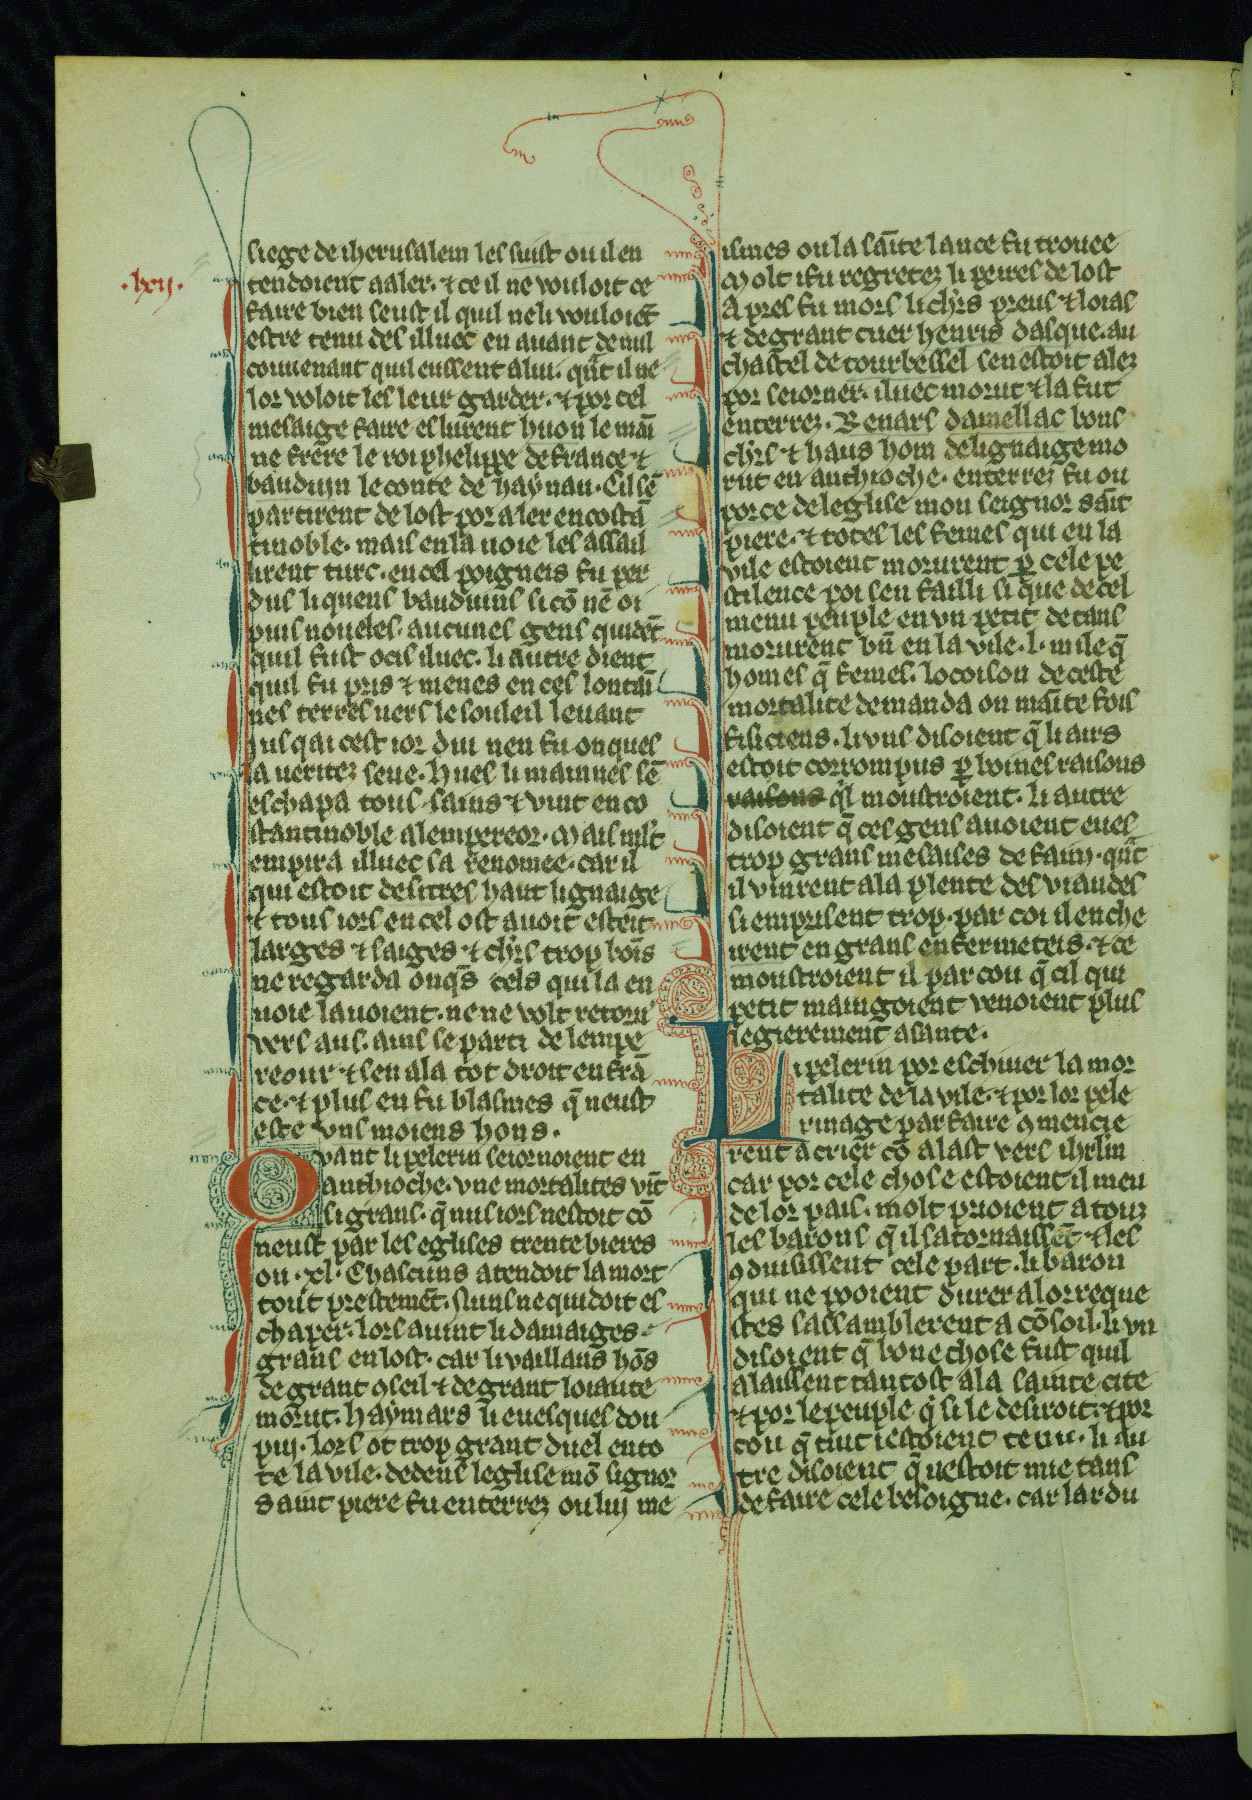 siege de iherusalem les suist ou il en
·lxij·
tendoient aaler· ⁊ ce il ne vouloit ce
faire bien seust il quil neli vouloiēt
estre tenu des illuec en auant de nul
couuenant quil eussent alui· qu̅t il ne
lor voloit les leur garder· ⁊ por cel
mesaige faire eslurent huon le mai
ne frere le roi phelippe de france ⁊
bauduyn le conte de haynau· Cil sē
partirent de lost por aler en costā
tinoble· mais en la uoie les assail
lirent turc· en cel poigneis fu per
dus li quens bauduins si cō nē oi
puis noueles· aucunes gens quidēt
quil fust ocis illuec· li autre dient
quil fu pris ⁊ menes en ces lontai
nes terres uers le souleil leuant
iusqai cest ior dui nen fu onques
la ueritez seue· hues li mainnes sē
eschapa tous sains ⁊ vint en co
stantinoble alempereor· Mais mlt
empira illuec sa renomee· car il
qui estoit de si tres haut lignaige
⁊ tous iors en cel ost auoit esteit
larges ⁊ saiges ⁊ chrs trop bōs
ne regarda onqs̄ cels qui la en
uoie lauoient· ne ne volt retorn̄
vers aus· ains se parti de lempe
reour ⁊ sen ala tot droit en frā
ce· ⁊ plus en fu blasmes q̄ neust
este vns moiens hons·
Quant li pelerin seiornoient en
anthioche· vne mortalites vīt
si grans· q̄ nus iors nestoit cō
neust par les eglises trente bieres
ou ·xl· Chascuns atendoit la mort
tout prestemēt· nuns ne quidoit es
chaper· lors auint li damaiges
grans en lost· car li vaillans hōs
de grant ꝯseil ⁊ de grant loiaute
morut· haymars li euesques dou
puy· lors ot trop grant duel en to
te la vile· dedens leglise mō signor
saint piere fu enterrez ou luj me
ismes ou la saīte lance fu trouee
Molt i fu regretez li peires de lost
Apres fu mors li chrs preus ⁊ loias
⁊ de grant cuer henris dasque· au
chastel de tourbessel sen estoit alez
por seiorner· illuec morut ⁊ la fut
enterrez· Renars damellac bons
chrs ⁊ haus hom de lignaige mo
rut en anthioche· enterrez fu ou
porce de leglise mon seignor saīt
piere· ⁊ totes les femes qui en la
vile estoient morurent ꝑ cele pe
stilence poi sen failli si que de cel
menu peuple en vn petit de tans
morurent bn̄ en la vile ·l· mile q̄
homes q̄ femes· locoison de ceste
mortalite demanda on maīte fois
fisiciens· li vns disoient q̄ li airs
estoit corrompus ꝑ boines raisons
raisons ql̄ moustroient· li autre
disoient q̄ ces gens auoient eues
trop grans mesaises de faim· qu̅t
il vinrent ala plente des viandes
si emprisent trop· par coi il enche
irent en grans enfermeteis· ⁊ ce
moustroient il par cou q̄ cil qui
petit maingoient venoient plus
legierement asante·
Li pelerin por eschiuer la mor
talite de la vile· ⁊ por lor pele
rinage parfaire ꝯmencie
rent a crier cō alast vers ihrlm
car por cele chose estoient il meu
de lor pais· molt prioient a touz
les barons q̄ il satornaissēt ⁊ les
ꝯduisissent cele part· li baron
qui ne pooient durer alor reque
stes sassamblerent a cōsoil· li vn
disoient q̄ bone chose fust quil
alaissent tantost ala sainte cite
⁊ por le peuple q̄ si le desiroit· ⁊ por
cou q̄ tuit i estoient tenu· li au
tre disoient q̄ nestoit mie tans
de faire cele besoigne· car lardu